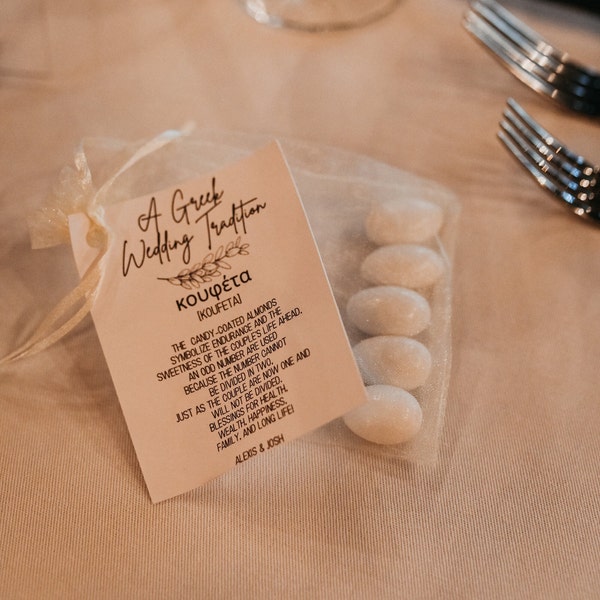 A Greek
Wedding Tradition
κουφέτα
[KOUFETA]
THE CANDY-COATED ALMONDS
SYMBOLIZE ENDURANCE AND THE
SWEETNESS OF THE COUPLE'S LIFE AHEAD.
AN ODD NUMBER ARE USED
BECAUSE THE NUMBER CANNOT
BE DIVIDED IN TWO,
JUST AS THE COUPLE ARE NOW ONE AND
WILL NOT BE DIVIDED.
BLESSINGS FOR HEALTH,
WEALTH, HAPPINESS,
FAMILY, AND LONG LIFE!
ALEXIS & JOSH